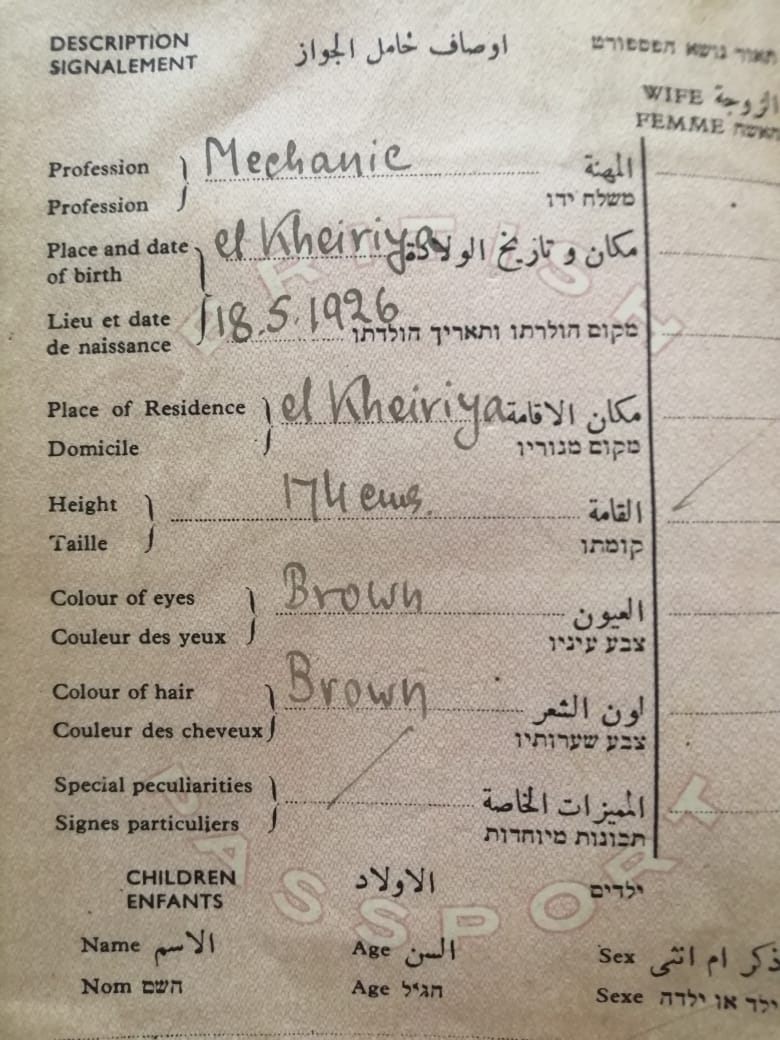 DESCRIPTION اوصاف حامل الجواز תאור נושא הפספורט
SIGNALEMENT
WIFE الزوجة
FEMME האשה
Profession } Mechanic المهنة
Profession משלח ידו
Place and date of birth } el Kheiriya مكان و تاريخ الولادة
Lieu et date de naissance 18.5.1926 מקום הולדתו ותאריך הולדתו
Place of Residence } el Kheiriya مكان الاقامة
Domicile מקום מגוריו
Height } 174 cms. القامة
Taille קומתו
Colour of eyes } Brown العيون
Couleur des yeux צבע עיניו
Colour of hair } Brown لون الشعر
Couleur des cheveux צבע שערותיו
Special peculiarities } المميزات الخاصة
Signes particuliers תכונות מיוחדות
CHILDREN الاولاد ילדים
ENFANTS
Name الاسم Age السن Sex ذكر ام انثى
Nom השם Age הגיל Sexe ילד או ילדה
BRITISH
PASSPORT